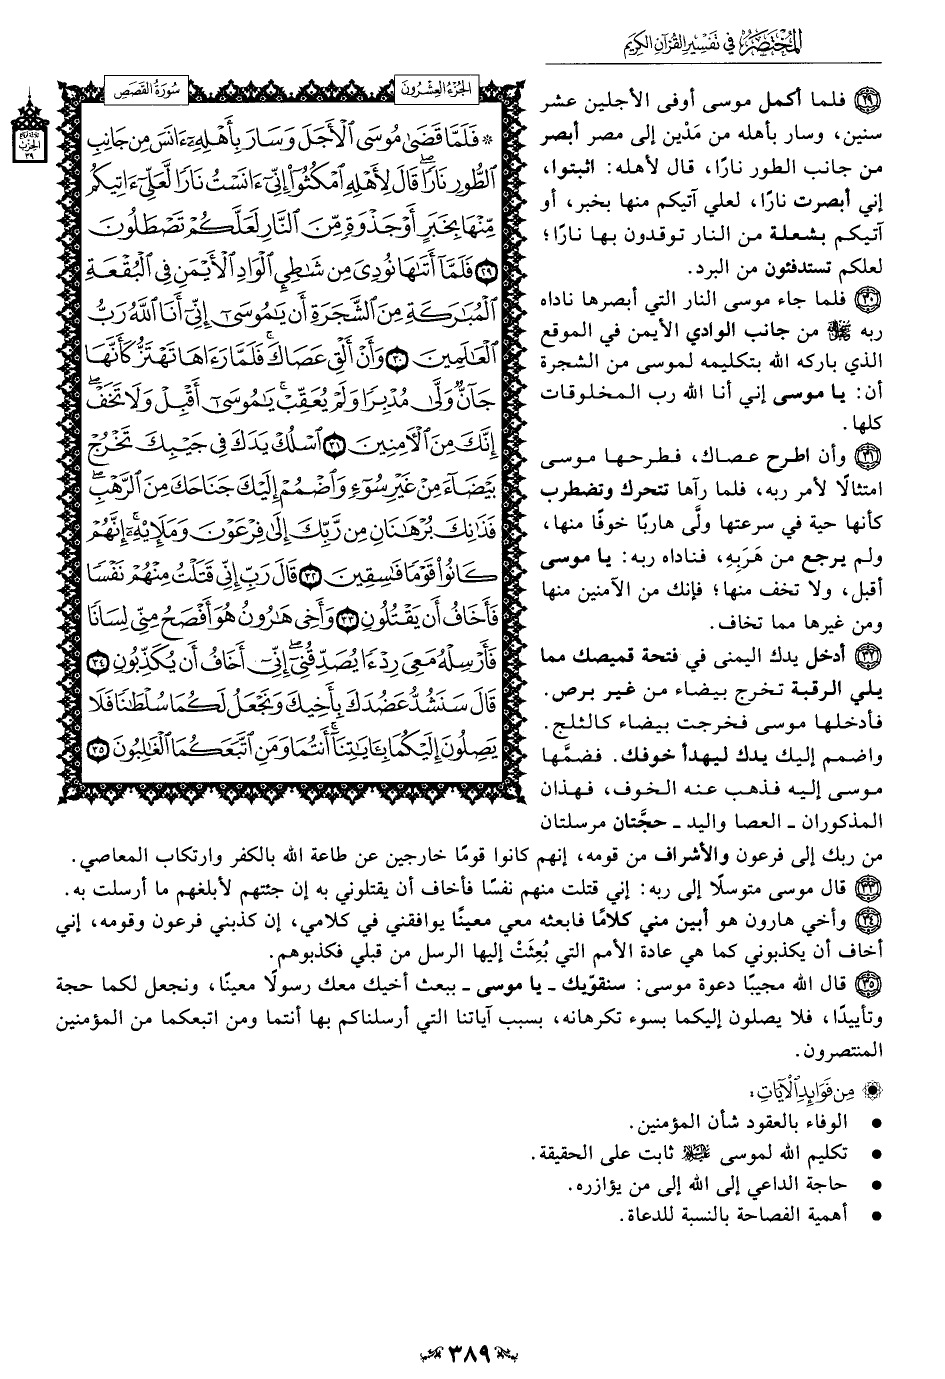 المختصر في تفسير القرآن الكريم
الجزء العشرون
سورة القصص
ثلاثة أرباع
الحزب
٣٩
* فَلَمَّا قَضَىٰ مُوسَى ٱلْأَجَلَ وَسَارَ بِأَهْلِهِۦٓ ءَانَسَ مِن جَانِبِ
ٱلطُّورِ نَارًاۖ قَالَ لِأَهْلِهِ ٱمْكُثُوٓا۟ إِنِّىٓ ءَانَسْتُ نَارًا لَّعَلِّىٓ ءَاتِيكُم
مِّنْهَا بِخَبَرٍ أَوْ جَذْوَةٍ مِّنَ ٱلنَّارِ لَعَلَّكُمْ تَصْطَلُونَ
۝٢٩ فَلَمَّآ أَتَىٰهَا نُودِىَ مِن شَٰطِئِ ٱلْوَادِ ٱلْأَيْمَنِ فِى ٱلْبُقْعَةِ
ٱلْمُبَٰرَكَةِ مِنَ ٱلشَّجَرَةِ أَن يَٰمُوسَىٰٓ إِنِّىٓ أَنَا ٱللَّهُ رَبُّ
ٱلْعَٰلَمِينَ ۝٣٠ وَأَنْ أَلْقِ عَصَاكَۖ فَلَمَّا رَءَاهَا تَهْتَزُّ كَأَنَّهَا
جَآنٌّ وَلَّىٰ مُدْبِرًا وَلَمْ يُعَقِّبْۚ يَٰمُوسَىٰٓ أَقْبِلْ وَلَا تَخَفْۖ
إِنَّكَ مِنَ ٱلْءَامِنِينَ ۝٣١ ٱسْلُكْ يَدَكَ فِى جَيْبِكَ تَخْرُجْ
بَيْضَآءَ مِنْ غَيْرِ سُوٓءٍ وَٱضْمُمْ إِلَيْكَ جَنَاحَكَ مِنَ ٱلرَّهْبِۖ
فَذَٰنِكَ بُرْهَٰنَانِ مِن رَّبِّكَ إِلَىٰ فِرْعَوْنَ وَمَلَإِي۟هِۦٓۚ إِنَّهُمْ
كَانُوا۟ قَوْمًا فَٰسِقِينَ ۝٣٢ قَالَ رَبِّ إِنِّى قَتَلْتُ مِنْهُمْ نَفْسًا
فَأَخَافُ أَن يَقْتُلُونِ ۝٣٣ وَأَخِى هَٰرُونُ هُوَ أَفْصَحُ مِنِّى لِسَانًا
فَأَرْسِلْهُ مَعِىَ رِدْءًا يُصَدِّقُنِىٓۖ إِنِّىٓ أَخَافُ أَن يُكَذِّبُونِ ۝٣٤
قَالَ سَنَشُدُّ عَضُدَكَ بِأَخِيكَ وَنَجْعَلُ لَكُمَا سُلْطَٰنًا فَلَا
يَصِلُونَ إِلَيْكُمَا بِـَٔايَٰتِنَآۚ أَنتُمَا وَمَنِ ٱتَّبَعَكُمَا ٱلْغَٰلِبُونَ ۝٣٥
٢٩ فلما أكمل موسى أوفى الأجلين عشر
سنين، وسار بأهله من مَدْين إلى مصر أبصر
من جانب الطور نارًا، قال لأهله: اثبتوا،
إني أبصرت نارًا، لعلي آتيكم منها بخبر، أو
آتيكم بشعلة من النار توقدون بها نارًا؛
لعلكم تستدفئون من البرد.
٣٠ فلما جاء موسى النار التي أبصرها ناداه
ربه ﷻ من جانب الوادي الأيمن في الموقع
الذي باركه الله بتكليمه لموسى من الشجرة
أن: يا موسى إني أنا الله رب المخلوقات
كلها.
٣١ وأن اطرح عصاك، فطرحها موسى
امتثالًا لأمر ربه، فلما رآها تتحرك وتضطرب
كأنها حية في سرعتها ولَّى هاربًا خوفًا منها،
ولم يرجع من هَرَبِهِ، فناداه ربه: يا موسى
أقبل، ولا تخف منها؛ فإنك من الآمنين منها
ومن غيرها مما تخاف.
٣٢ أدخل يدك اليمنى في فتحة قميصك مما
يلي الرقبة تخرج بيضاء من غير برص.
فأدخلها موسى فخرجت بيضاء كالثلج.
واضمم إليك يدك ليهدأ خوفك. فضمَّها
موسى إليه فذهب عنه الخوف، فهذان
المذكوران ـ العصا واليد ـ حجَّتان مرسلتان
من ربك إلى فرعون والأشراف من قومه، إنهم كانوا قومًا خارجين عن طاعة الله بالكفر وارتكاب المعاصي.
٣٣ قال موسى متوسلًا إلى ربه: إني قتلت منهم نفسًا فأخاف أن يقتلوني به إن جئتهم لأبلغهم ما أرسلت به.
٣٤ وأخي هارون هو أبين مني كلامًا فابعثه معي معينًا يوافقني في كلامي، إن كذبني فرعون وقومه، إني
أخاف أن يكذبوني كما هي عادة الأمم التي بُعِثَتْ إليها الرسل من قبلي فكذبوهم.
٣٥ قال الله مجيبًا دعوة موسى: سنقوّيك ـ يا موسى ـ ببعث أخيك معك رسولًا معينًا، ونجعل لكما حجة
وتأييدًا، فلا يصلون إليكما بسوء تكرهانه، بسبب آياتنا التي أرسلناكم بها أنتما ومن اتبعكما من المؤمنين
المنتصرون.
من فوائد الآيات:
• الوفاء بالعقود شأن المؤمنين.
• تكليم الله لموسى عليه السلام ثابت على الحقيقة.
• حاجة الداعي إلى الله إلى من يؤازره.
• أهمية الفصاحة بالنسبة للدعاة.
٣٨٩